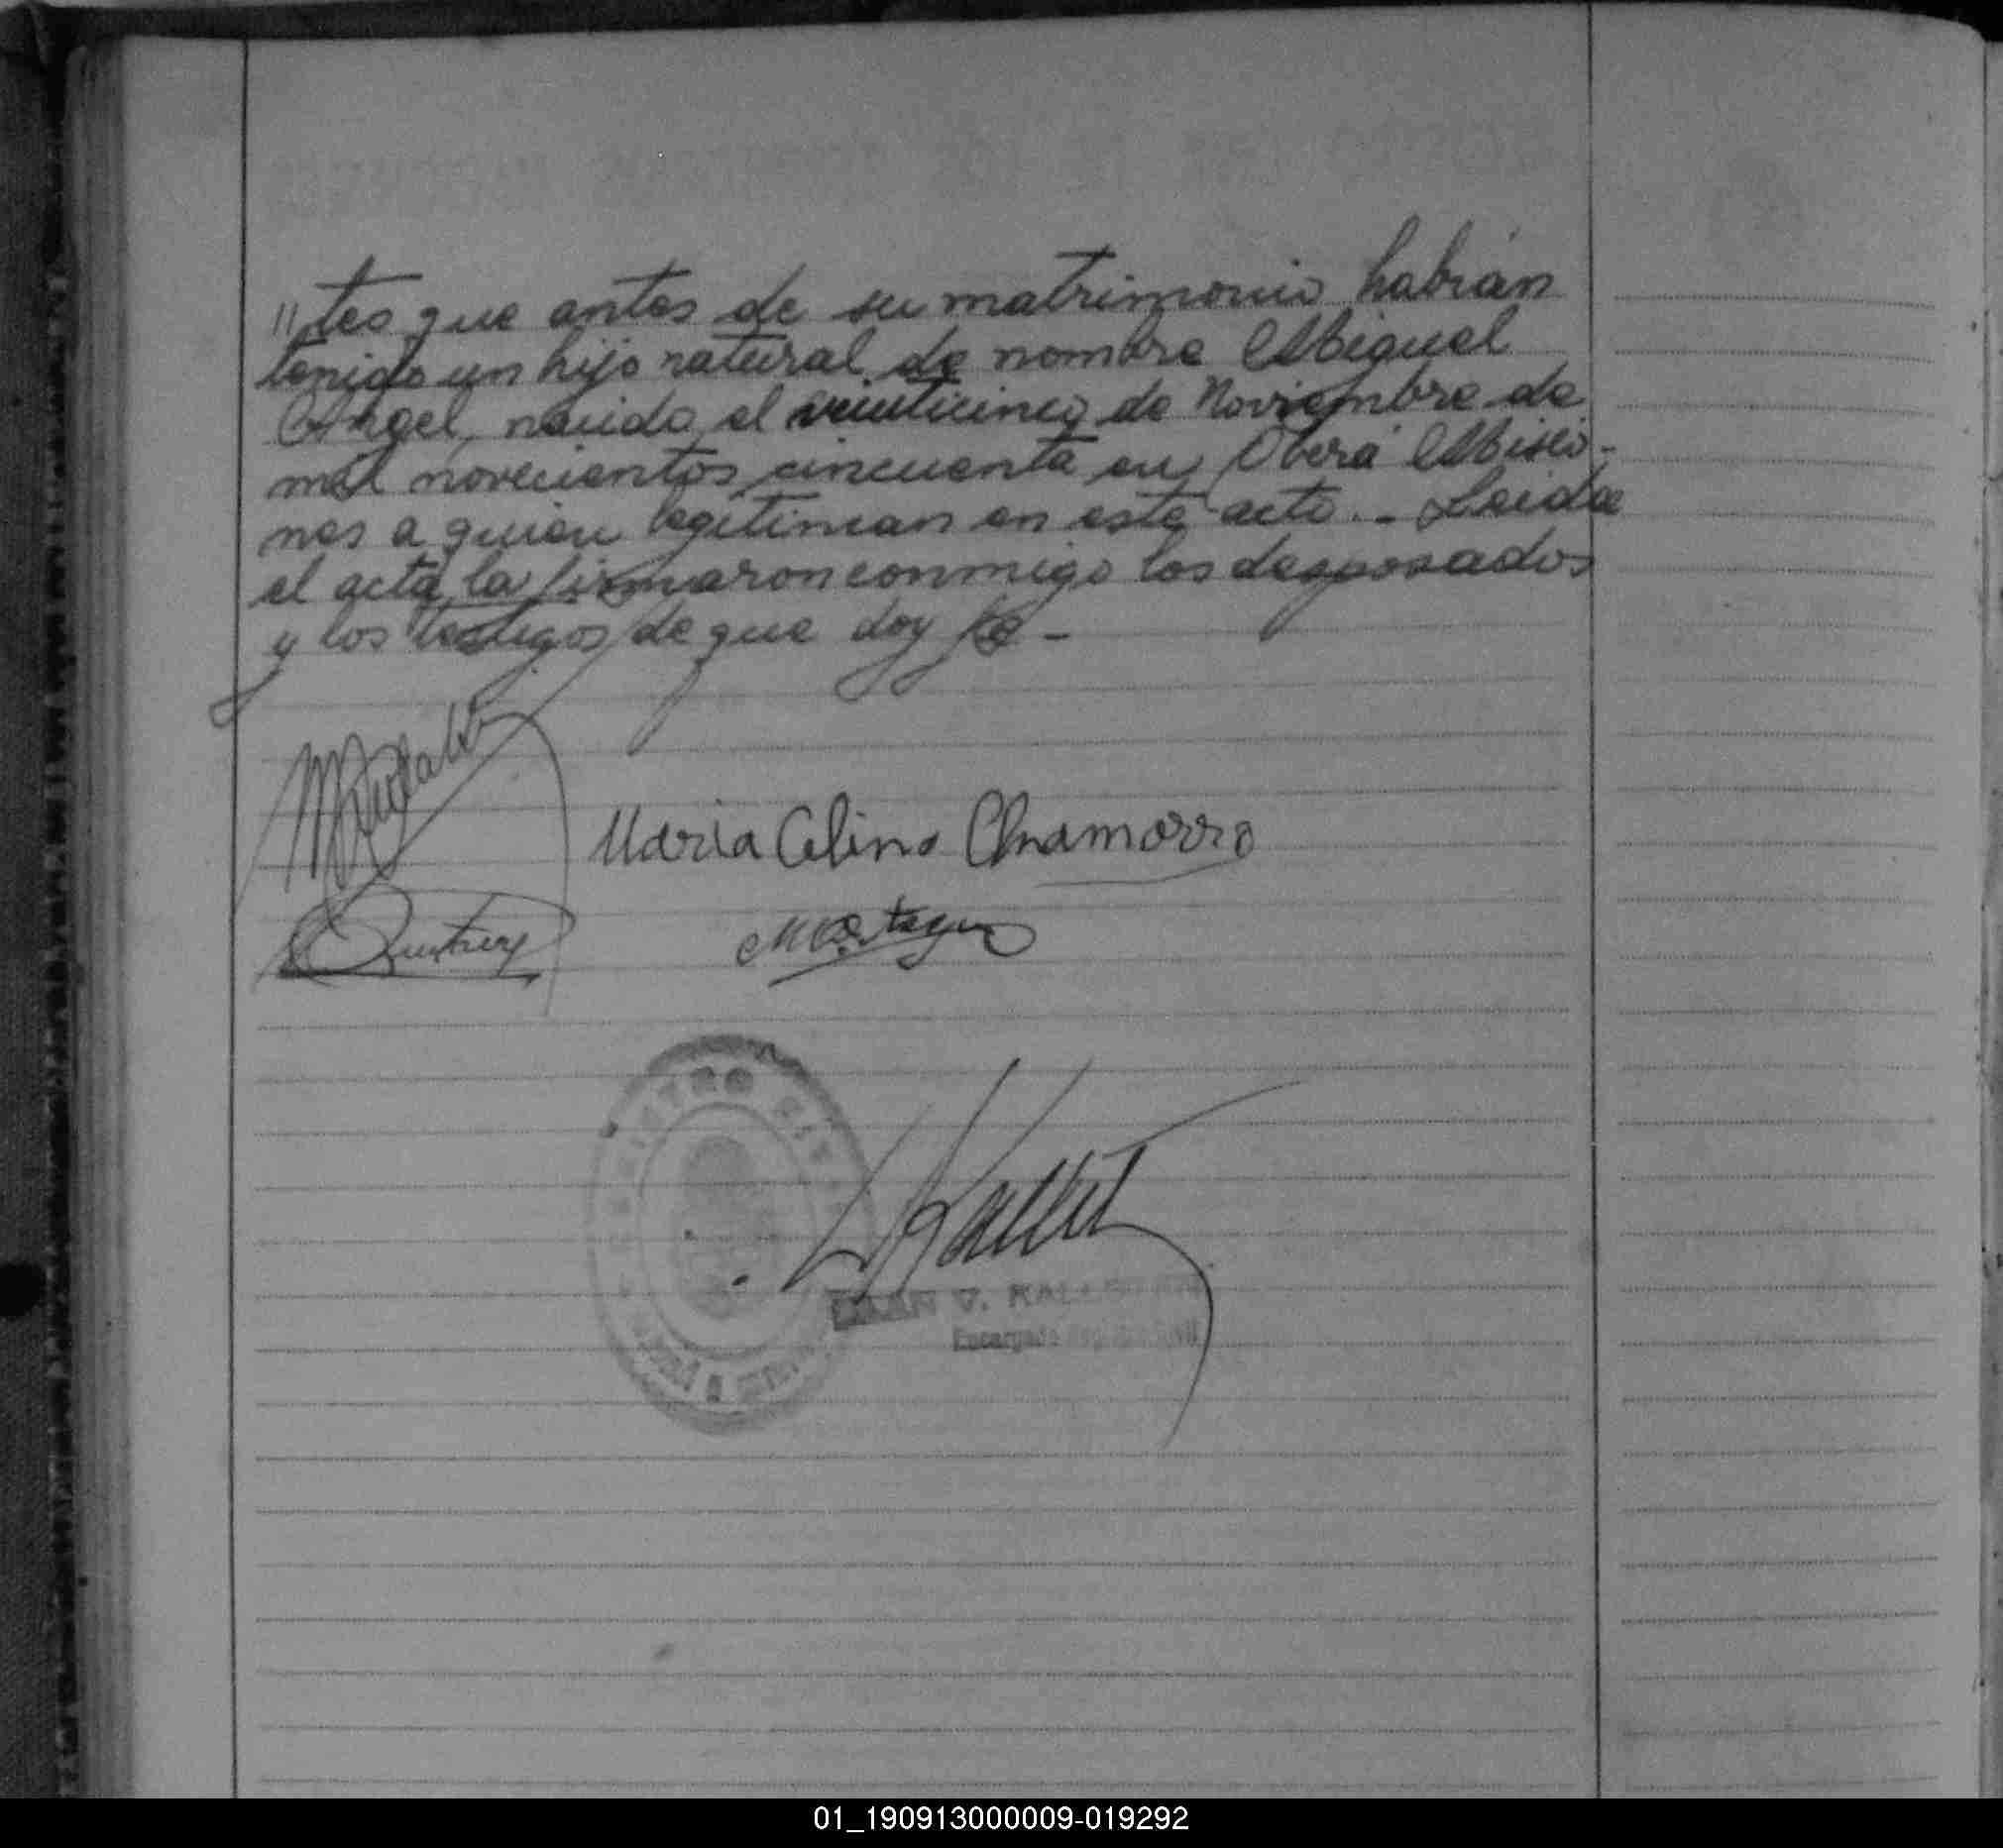 "tes que antes de su matrimonio habían
tenido un hijo natural de nombre Miguel
Angel, nacido el veinticinco de Noviembre de
mil novecientos cincuenta en Oberá Misio-
nes a quien legitiman en este acto.- Leida
el acta la firmaron conmigo los desposados
y los testigos de que doy fé-
Maria Celina Chamorro
REGISTRO CIVIL
V. KALL
Encargado
01_190913000009-019292